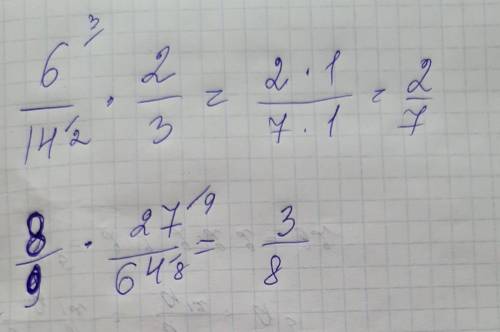 6/14 ´2 ³ · 2/3 = 2 · 1/7 · 1 = 2/7
8/9 · 27 ´9/64 ´8 = 3/8